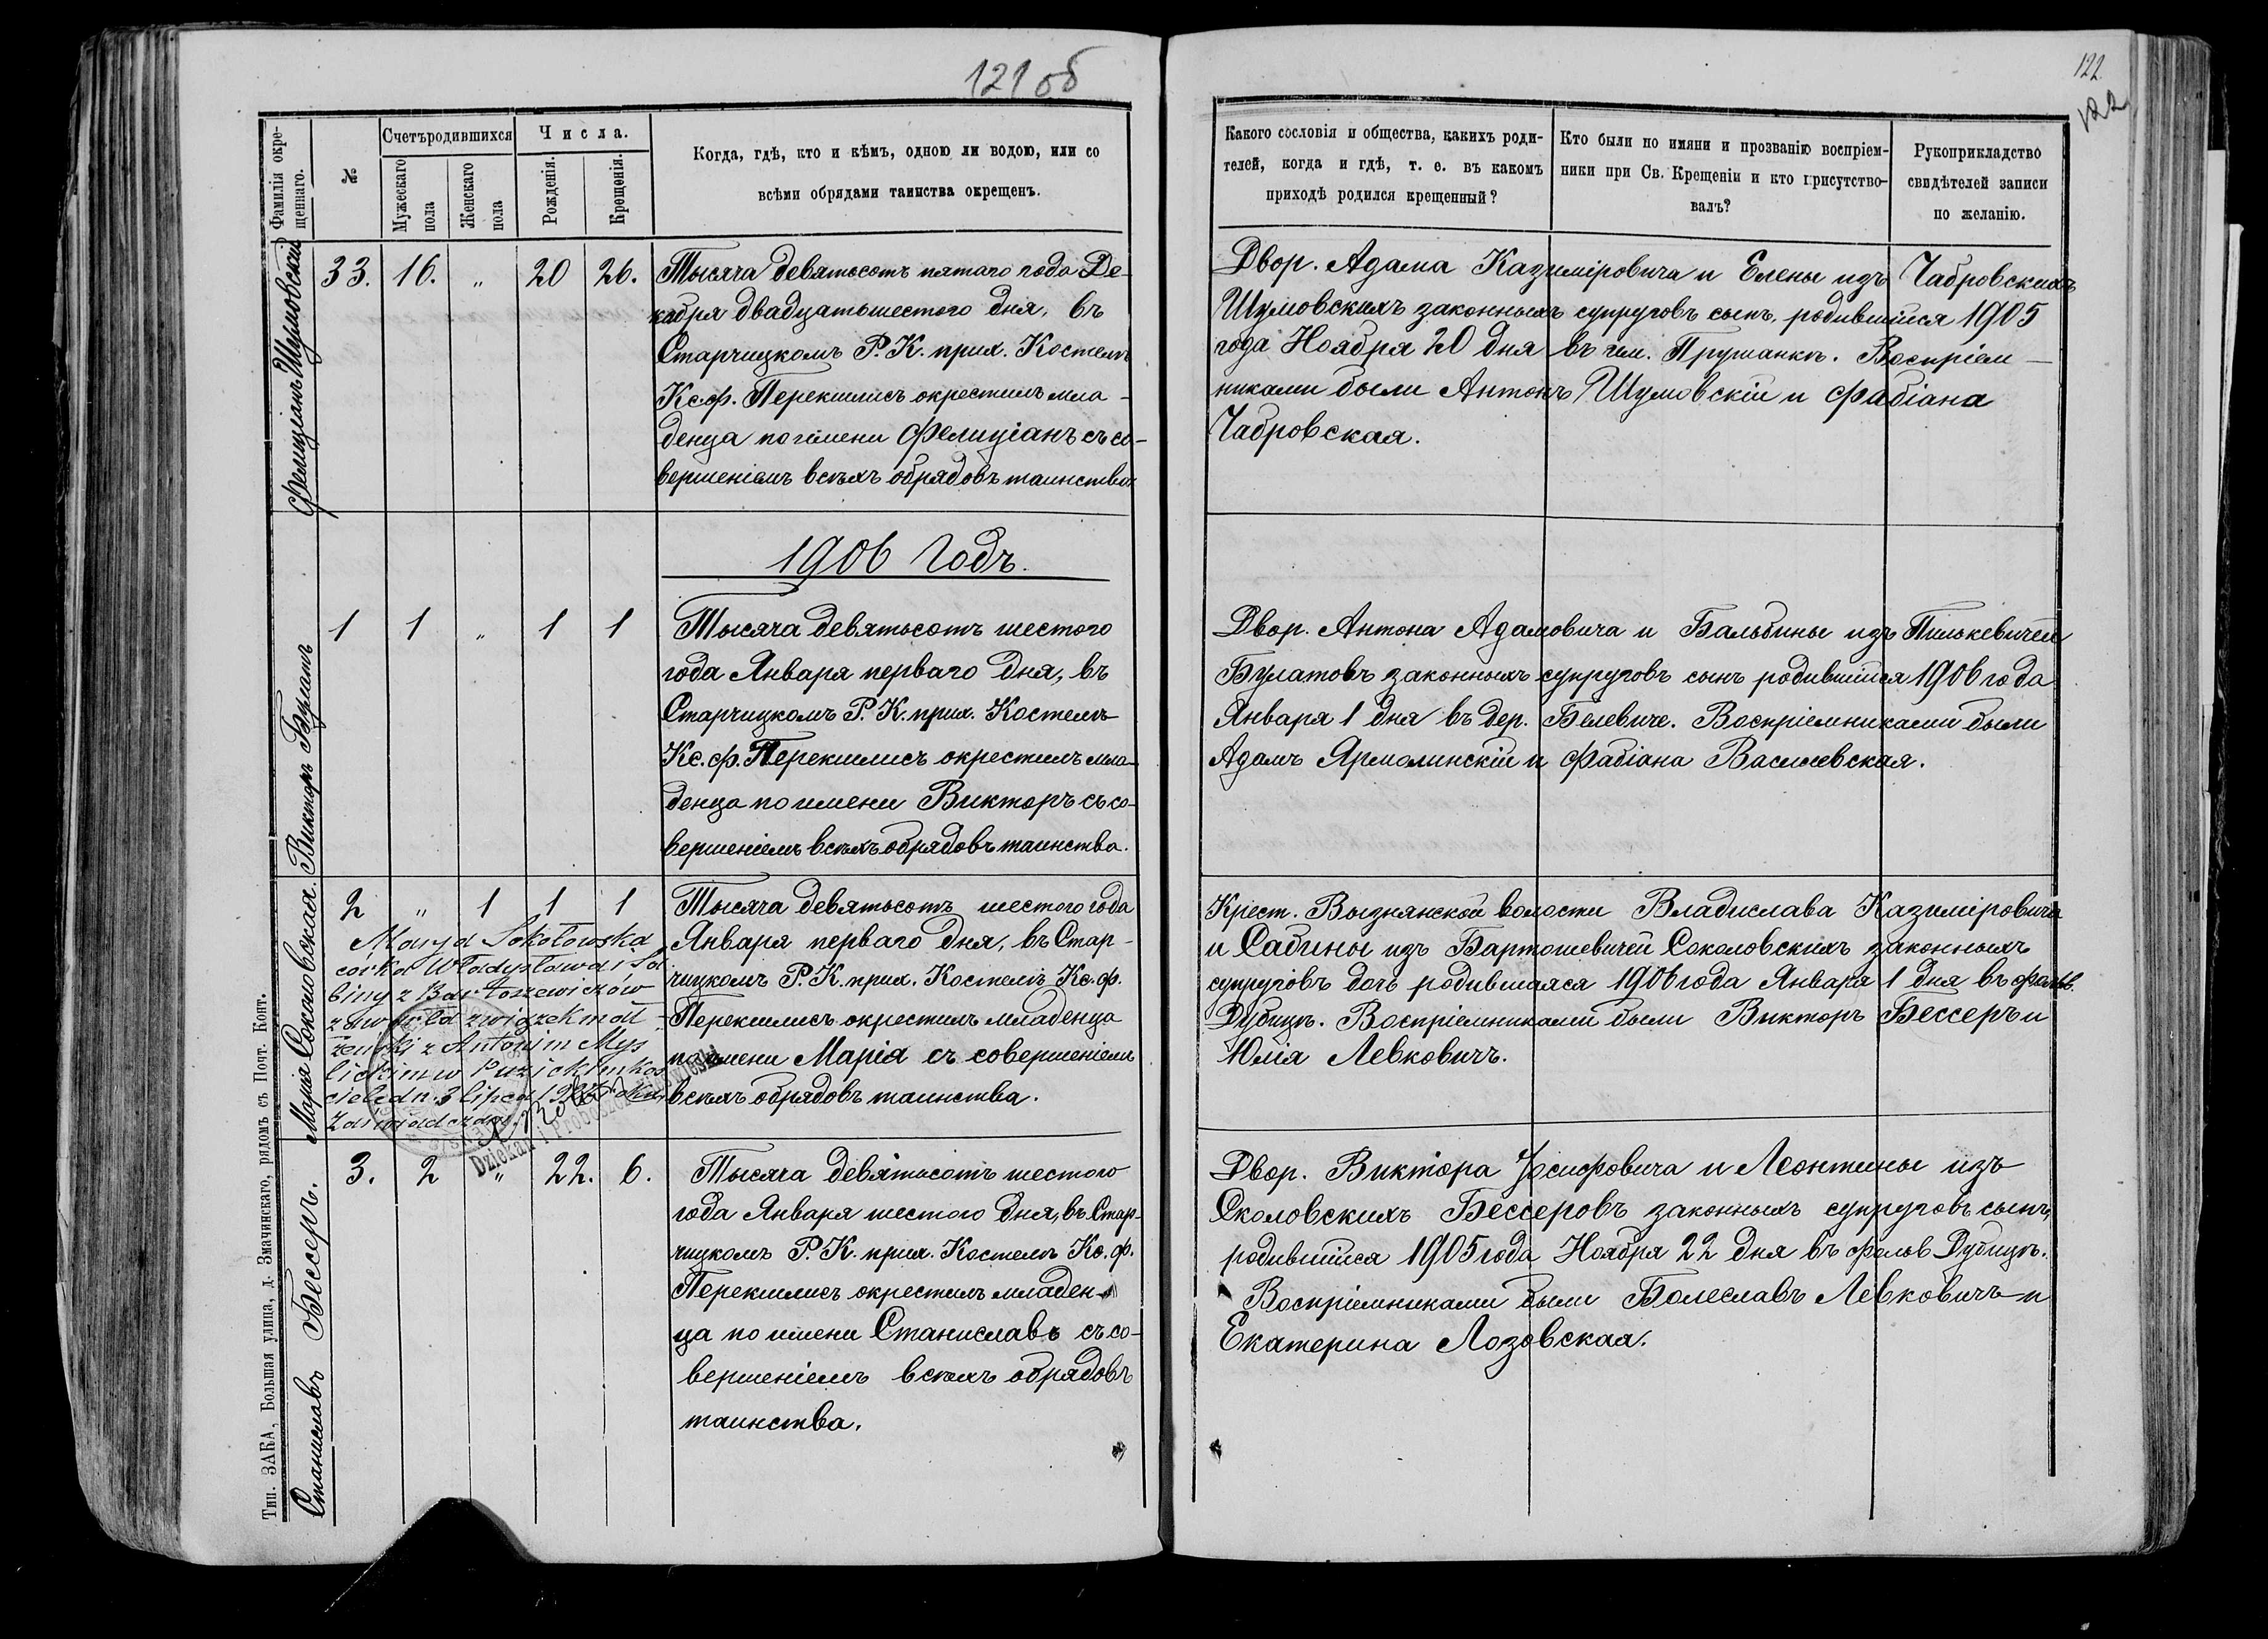 121 об
Фамилія окре-
щеннаго.
№
Счетъ родившихся
Мужескаго
пола
Женскаго
пола
Числа.
Рожденія.
Крещенія.
Когда, гдѣ, кто и кѣмъ, одною ли водою, или со
всѣми обрядами таинства окрещенъ.
Фелиціанъ Шумовскій
33. 16. " 20 26.
Тысяча девятьсотъ пятаго года Де-
кабря двадцатьшестого дня, въ
Старчицкомъ Р. К. прих. Костелѣ
Кс. Ф. Перекшлисъ окрестилъ мла-
денца по имени Фелиціанъ съ со-
вершеніемъ всѣхъ обрядовъ таинства
1906 Годъ.
Викторъ Булатъ
1 1 " 1 1
Тысяча девятьсотъ шестого
года Января перваго дня, въ
Старчицкомъ Р. К. прих. Костелѣ
Кс. Ф. Перекшлисъ окрестилъ мла-
денца по имени Викторъ съ со-
вершеніемъ всѣхъ обрядовъ таинства.
Марія Соколовская.
2 " 1 1 1
Тысяча девятьсотъ шестого года
Января перваго дня, въ Стар-
чицкомъ Р. К. прих. Костелѣ Кс. Ф.
Перекшлисъ окрестилъ младенца
по имени Марія съ совершеніемъ
всѣхъ обрядовъ таинства.
Maryja Sokołowska
córka Władysława i Sa
biny z Bartoszewiczów
zawarła związek mał-
żeński z Antonim Mys
lickim w Puzickim koś
ciele dn. 3 lipca
Zaświadczam.
Dziekan i Proboszcz
Станиславъ Бессеръ.
3. 2 " 22. 6.
Тысяча девятьсотъ шестого
года Января шестого дня, въ Стар-
чицкомъ Р. К. прих. Костелѣ Кс. Ф.
Перекшлисъ окрестилъ младен-
ца по имени Станиславъ съ со-
вершеніемъ всѣхъ обрядовъ
таинства.
Тип. ЗАКА, Большая улица, д. Змачинскаго, рядомъ съ Почт. Конт.
122
122
Какого сословія и общества, какихъ роди-
телей, когда и гдѣ, т. е. въ какомъ
приходѣ родился крещенный?
Кто были по имяни и прозванію воспріем-
ники при Св. Крещеніи и кто присутство-
валъ?
Рукоприкладство
свидѣтелей записи
по желанію.
Двор. Адама Казиміровича и Елены изъ Чабровскихъ
Шумовскихъ законныхъ супруговъ сынъ, родившійся 1905
года Ноября 20 дня въ им. Прушанкѣ. Воспріем-
никами были Антонъ Шумовскій и Фабіана
Чабровская.
Двор. Антона Адамовича и Бальбины изъ Пилькевичей
Булатовъ законныхъ супруговъ сынъ родившійся 1906 года
Января 1 дня въ дер. Белевиче. Воспріемниками были
Адамъ Ярмолинскій и Фабіана Василевская.
Крест. Вызнянской волости Владислава Казиміровича
и Сабины изъ Бартошевичей Соколовскихъ законныхъ
супруговъ дочь родившаяся 1906 года Января 1 дня въ фольв.
Дубицѣ. Воспріемниками были Викторъ Бессеръ и
Юлія Левковичъ.
Двор. Виктора Іосифовича и Леонтины изъ
Сколовскихъ Бессеровъ законныхъ супруговъ сынъ,
родившійся 1905 года Ноября 22 дня въ фольв Дубицѣ.
Воспріемниками были Болеславъ Левковичъ и
Екатерина Лозовская.